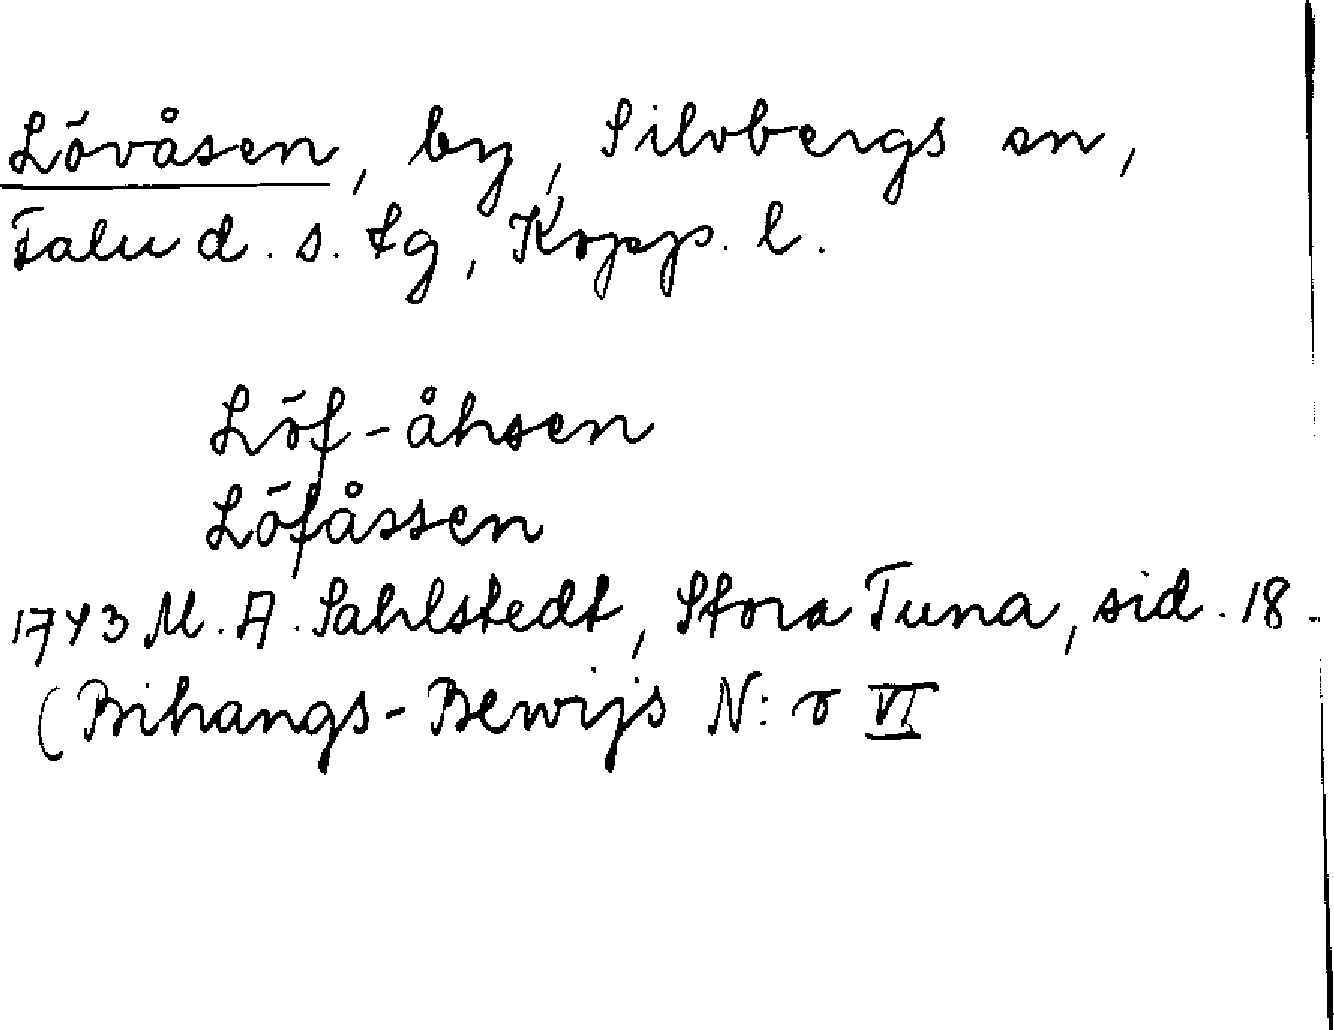 Lövåsen, by, Silvbergs sn,
Falu d. s. tg, Kopp. l.
Löf-åhsen
Löfåssen
1743 M. A. Sahlstedt, Stora Tuna, sid. 18.
(Bihangs-Bewijs N:o VI